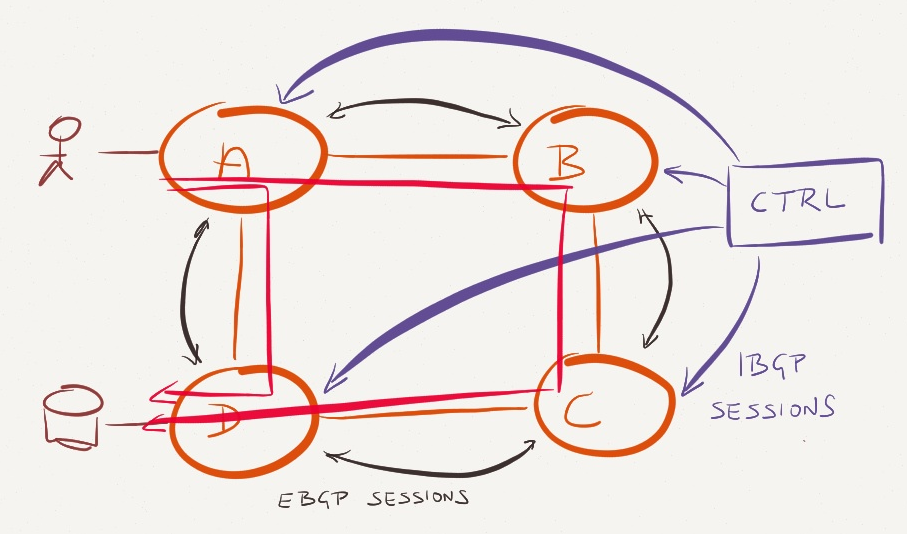 A
B
CTRL
IBGP
SESSIONS
D
C
EBGP SESSIONS